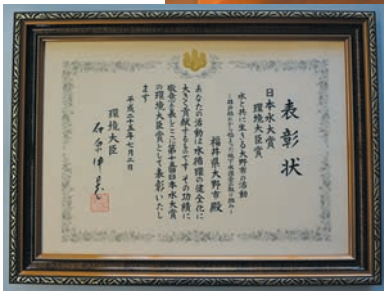 表彰状
日本水大賞
環境大臣賞
水と共に生きる大野市の活動
福井県大野市殿
あなたの活動は水循環の健全化に
大きく貢献するものです その功績に
敬意を表しここに第十五回日本水大賞
の環境大臣賞として表彰いたし
ます
平成二十五年七月二日
環境大臣
石原伸晃